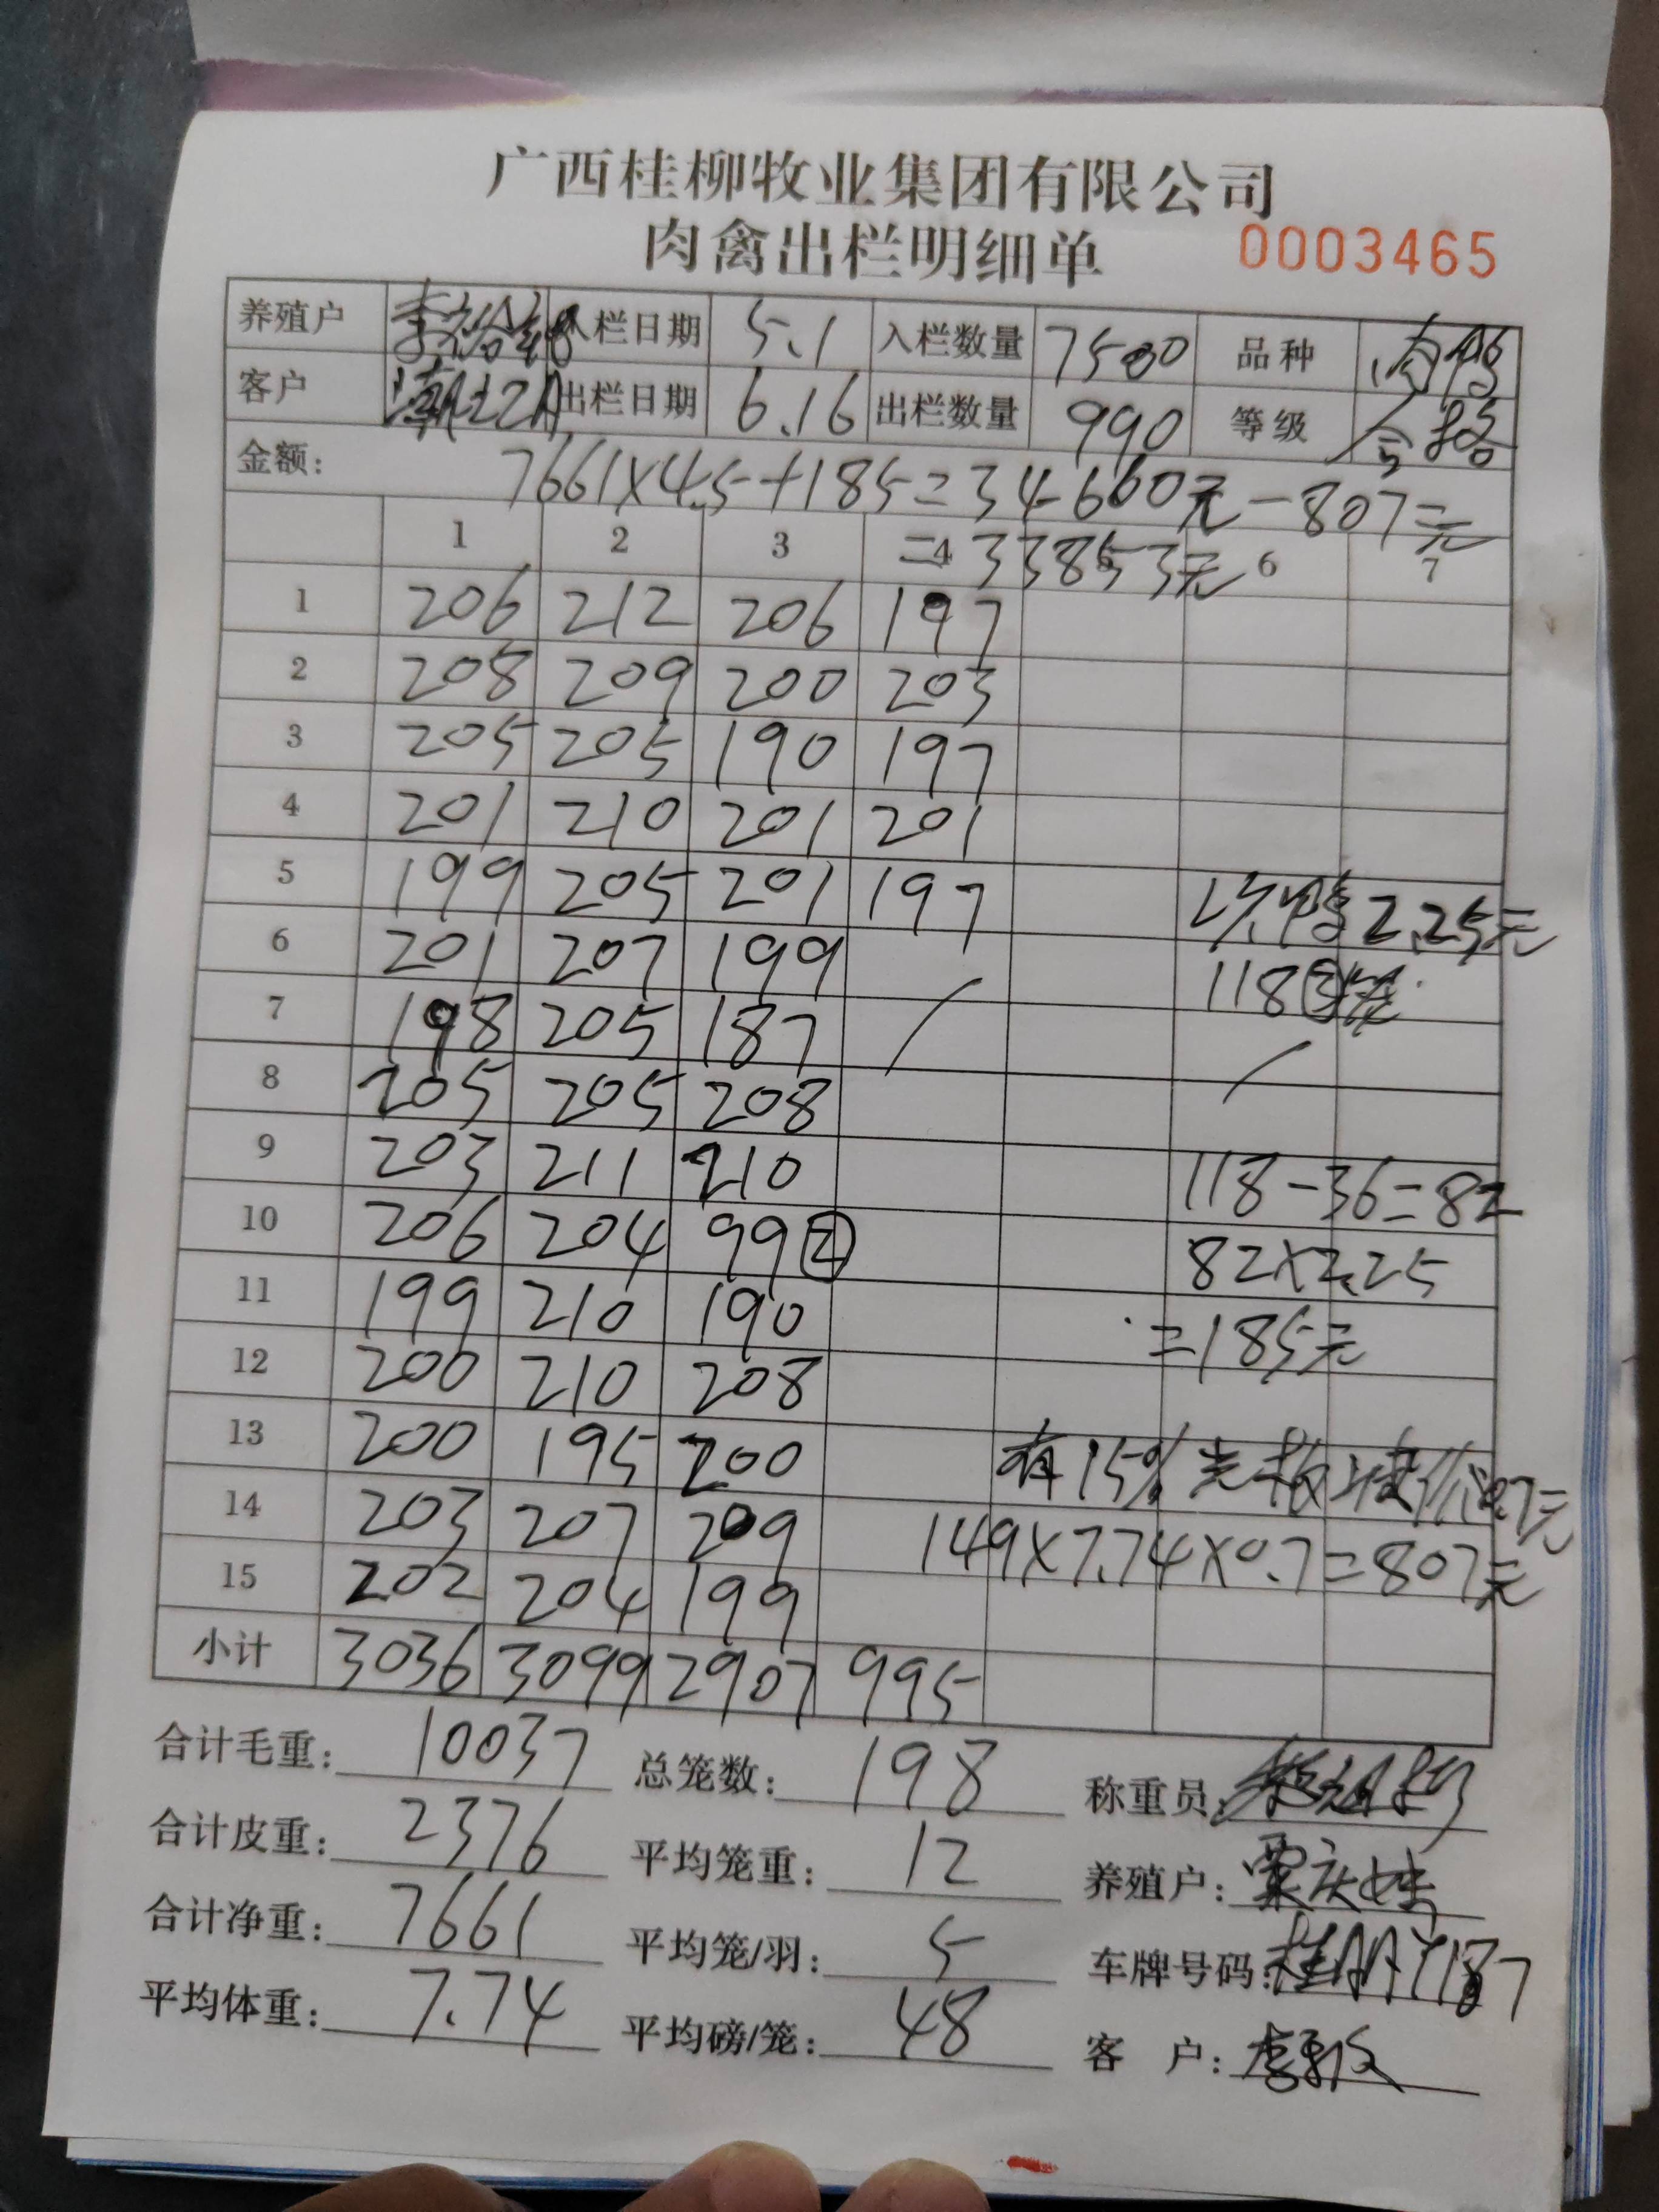 广西桂柳牧业集团有限公司
肉禽出栏明细单 0003465
养殖户 入栏日期 5.1 入栏数量 7500 品种 肉鸭
客户 出栏日期 6.16 出栏数量 990 等级 合格
金额: 7661×4.5+185=34660元-807元
=33853元
1 2 3 4 6 7
1 206 212 206 197
2 208 209 200 203
3 205 205 190 197
4 201 210 201 201
5 199 205 201 197 次鸭2.25元
6 201 207 199 118③
7 198 205 187
8 205 205 208
9 203 211 210 118-36=82
10 206 204 99② 82×2.25
11 199 210 190 =185元
12 200 210 208
13 200 195 200 有15% 0.7元
14 203 207 209 149×7.74×0.7=807元
15 202 204 199
小计 3036 3099 2907 995
合计毛重: 10037 总笼数: 198 称重员:
合计皮重: 2376 平均笼重: 12 养殖户: 覃庆
合计净重: 7661 平均笼/羽: 5 车牌号码:
平均体重: 7.74 平均磅/笼: 48 客 户: